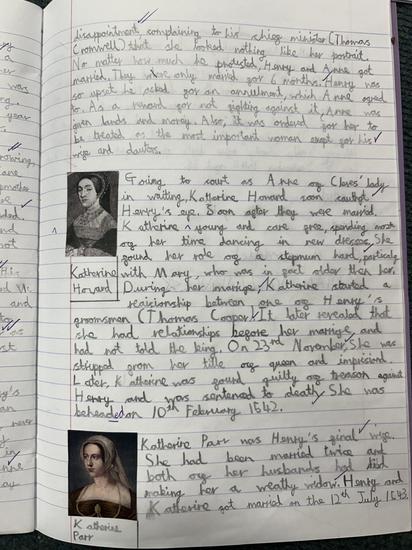 disappointment, complaining to his chief minister (Thomas
Cromwell) that she looked nothing like her portrait.
No matter how much he protested, Henry and Anne got
married. They were only married for 6 months. Henry was
so upset he asked for an annulment, which Anne agreed
to. As a reward for not fighting against it, Anne was
given lands and money. Also, it was ordered for her to
be treated as the most important women exept for his
wife and dautes.
Going to court as Anne of Cleves' lady
in waiting, Katherine Howard soon caught
Henry's eye. Soon after they were married.
Katherine ^ young and care free, spending most
of her time dancing in new dresses. She
found her role of a stepmum hard, particuly
with Mary, who was in fact older then her.
During her marrige, Katherine started a
Katherine
Howard
relasionship between one of Henry's
groomsmen (Thomas Cooper). It later revealed that
she had relationships before her marrige, and
had not told the king. On 23rd November, she was
stripped from her title of queen and imprisiond.
Later, Katherine was found guilty of treason against
Henry and was sentenced to death. She was
beheaded on 10th February 1542.
Katherine Parr was Henry's final wife.
She had been married twice and
both of her husbands had died
making her a weathy widow. Henry and
Katherine got married on the 12th July 1543.
Katherine
Parr